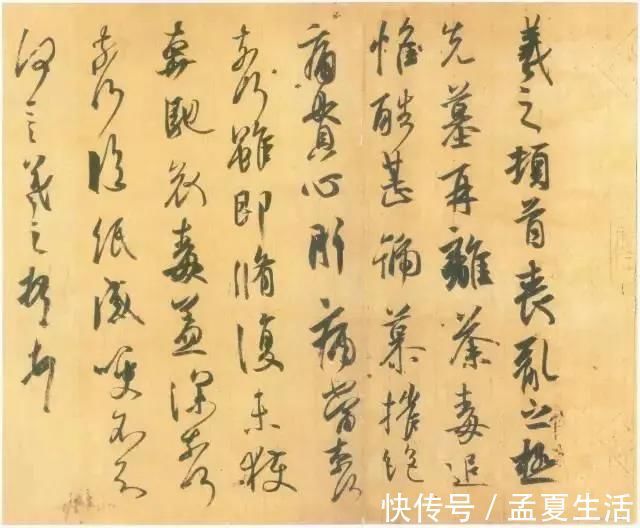 羲之頓首喪亂之極
先墓再離荼毒追
惟酷甚號慕摧絕
痛貫心肝痛當柰何
柰何雖即脩復未獲
奔馳哀毒益深柰何
柰何臨紙感哽不知
何言羲之頓首頓首
快传号/孟夏生活